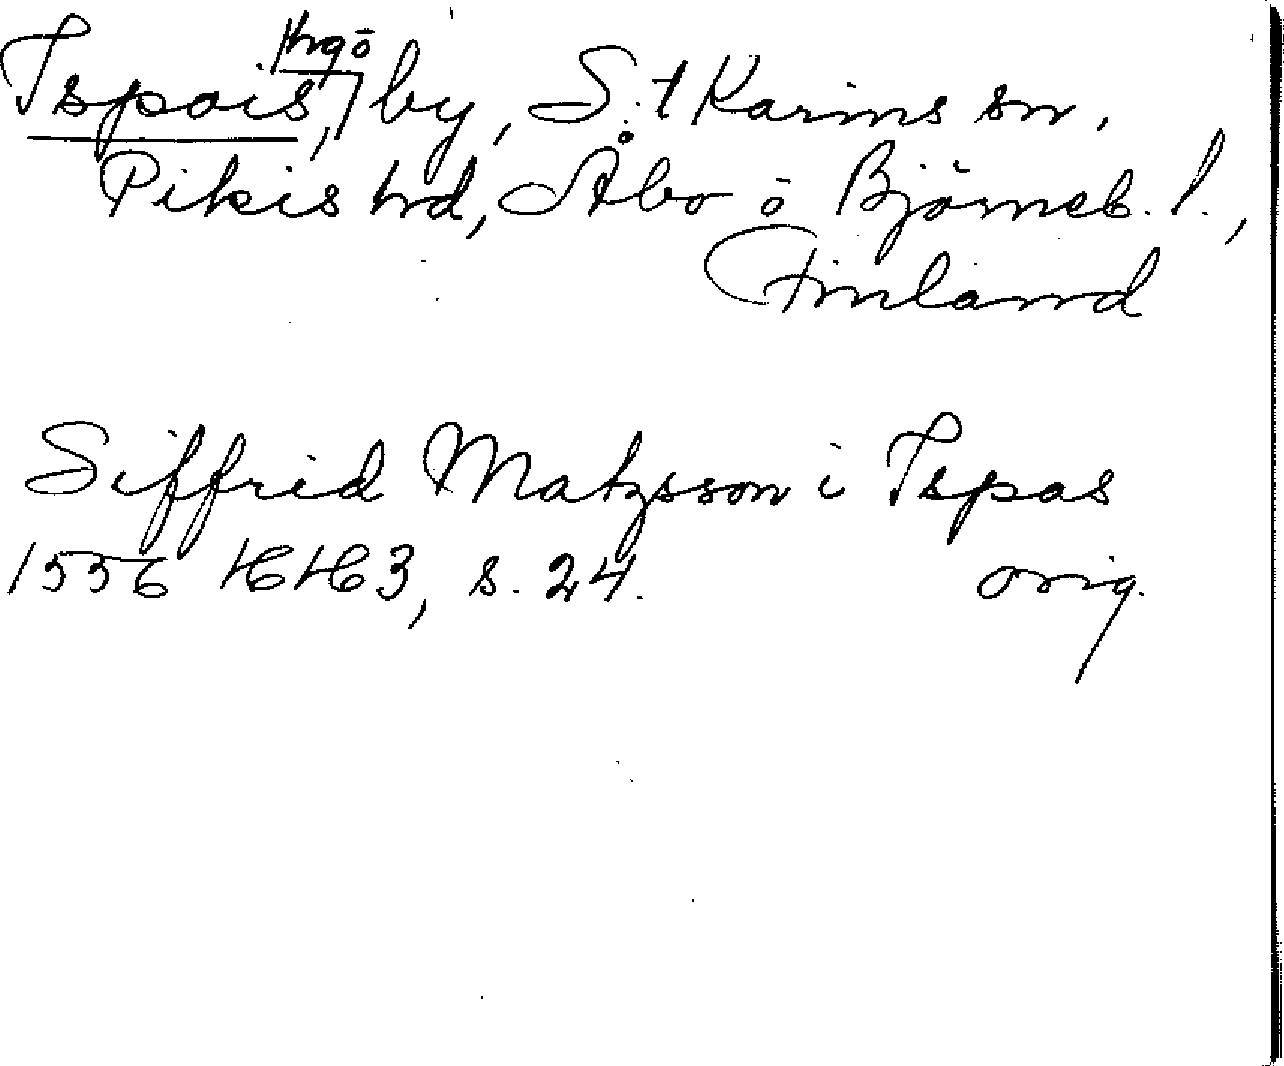 Ispois, Hrgö by, S:t Karins sn,
Pikis hrd, Åbo ö Björneb. l.,
Finland
Siffrid Matzsson i Ispas
1556 HH3, s. 24. orig.